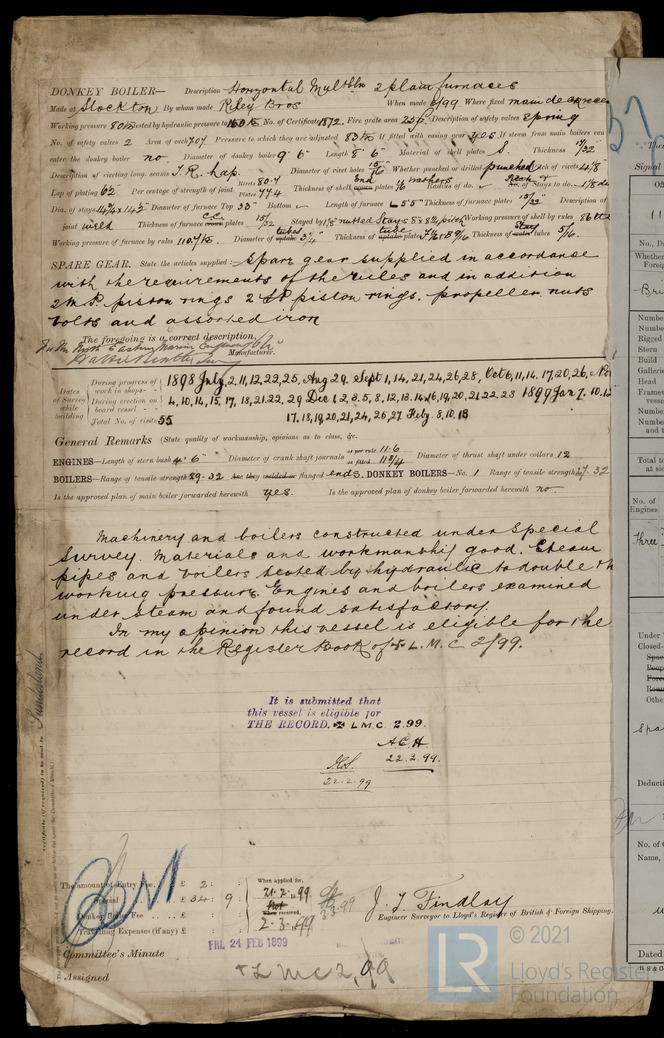 DONKEY BOILER— Description Horizontal Multblr 2 plain furnaces
Made at Stockton By whom made Riley Bros When made 2/99 Where fixed main deck
Working pressure 80 lb tested by hydraulic pressure to 160 lb No. of Certificate 1872 Fire grate area Description of safety valves Spring
No. of safety valves 2 Area of each 7.07 Pressure to which they are adjusted 83 lb If fitted with easing gear yes If steam from main boilers can
enter the donkey boiler no Diameter of donkey boiler 9' 6" Length 8' 6" Material of shell plates S. Thickness 17/32
Description of riveting long. seams T.R. Lap. Diameter of rivet holes 15/16 Whether punched or drilled punched Pitch of rivets
Lap of plating 6 1/2 Per centage of strength of joint Rivets 80.7 Plates 77.4 Thickness of shell End plates Radius of do. No. of Stays to do.
Dia. of stays Diameter of furnace Top 33" Bottom Length of furnace Thickness of furnace plates 15/32 Description of
joint weld Thickness of furnace C.C. plates 15/32 Stayed by nutted Stays Working pressure of shell by rules 86
Working pressure of furnace by rules 110.7 lb Diameter of tubes 3 1/4" Thickness of tube plates Thickness of Stay tubes 5/16.
SPARE GEAR. State the articles supplied:— Spare gear supplied in accordance
with the requirements of the rules and in addition
2 piston rings 2 piston rings, propeller nuts
bolts and assorted iron
The foregoing is a correct description,
Manufacturer.
Dates of Survey while building
During progress of work in shops - - 1898 July 2, 11, 12, 22, 25, Aug 29, Sept 1, 14, 21, 24, 26, 28, Oct 6, 11, 14, 17, 20, 26, Nov
During erection on board vessel - - 4, 10, 14, 15, 17, 18, 21, 22, 29 Dec 1, 2, 3, 5, 8, 12, 13, 14, 16, 19, 20, 21, 22, 23 1899 Jan 7, 10, 12
Total No. of visits 55 17, 18, 19, 20, 21, 24, 26, 27 Feby. 8, 10, 13
General Remarks (State quality of workmanship, opinions as to class, &c.
ENGINES—Length of stern bush 4' 6" Diameter of crank shaft journals as per rule 11.6 as fitted 11 3/4 Diameter of thrust shaft under collars 12
BOILERS—Range of tensile strength 29-32 Are they welded or flanged ends. DONKEY BOILERS—No. 1 Range of tensile strength 27 32
Is the approved plan of main boiler forwarded herewith yes. Is the approved plan of donkey boiler forwarded herewith no.
Machinery and boilers constructed under Special
Survey. Materials and workmanship good. Steam
pipes and boilers tested by hydraulic to double th
working pressure. Engines and boilers examined
under steam and found satisfactory.
In my opinion this vessel is eligible for the
record in the Register Book of ✠ L.M.C. 2/99.
It is submitted that
this vessel is eligible for
THE RECORD. ✠ L.M.C. 2.99.
22.2.99.
22.2.99
The amount of Entry Fee . . £ 2 : :
Special . . £ 34 : 9 :
Donkey Boiler Fee . . . . £ : :
Travelling Expenses (if any) £ : :
When applied for,
21.2.1899
When received,
2.3.1899
J. T. Findlay
Engineer Surveyor to Lloyd's Register of British & Foreign Shipping.
Committee's Minute FRI. 24 FEB 1899
Assigned + L M C 2,99
Sunderland.
© 2021
LR
Lloyd's Register
Foundation
Signal
11
No., D
Whether
Foreig
Bri
Numbe
Numbe
Rigged
Stern
Build
Galleri
Head
Frame
vess
Numbe
Numbe
and t
Total to
at sid
No. of
Engines
Three
Under
Closed-
Othe
Spa
Deducti
No. of
Name,
Dated